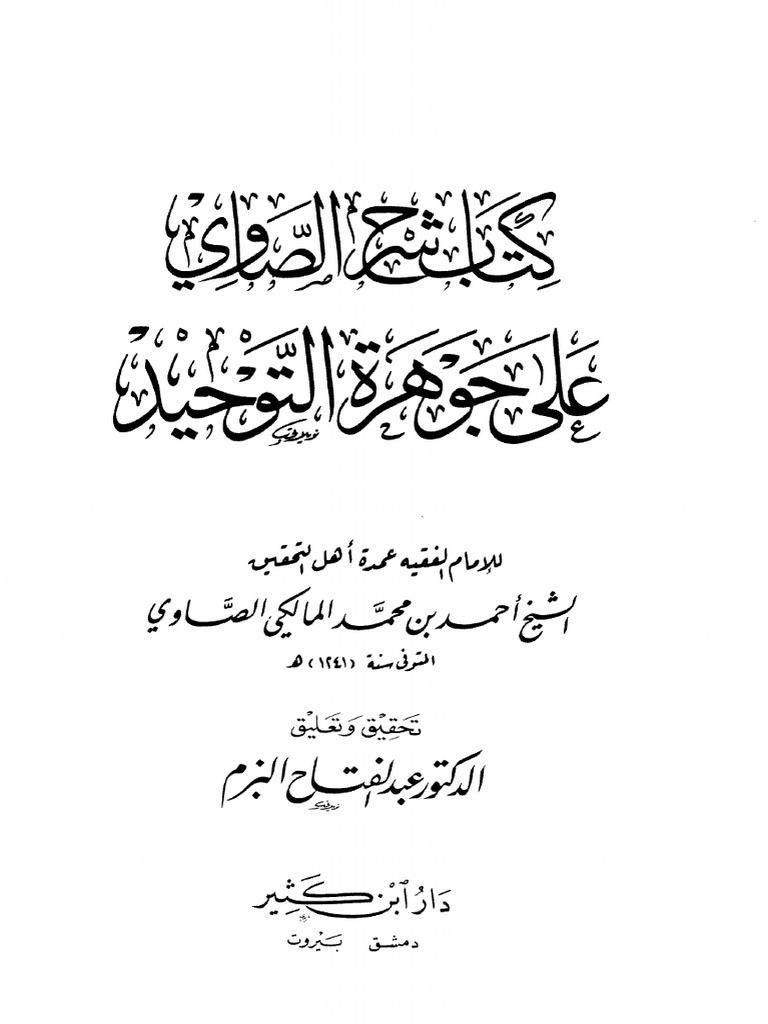 كِتَابُ شَرْحِ الصَّاوِيْ
عَلَى جَوْهَرَةِ التَّوْحِيْدِ
للإمام الفقيه عمدة أهل التحقيق
الشيخ أحمد بن محمَّد المالكي الصَّاوي
المتوفى سنة (١٢٤١) هـ
تَحْقِيْق وَتَعَلِيْق
الدكتور عبد الفتاح البزم
دَارُ ٱبْنِ كَثِير
دمشق بَيْروت